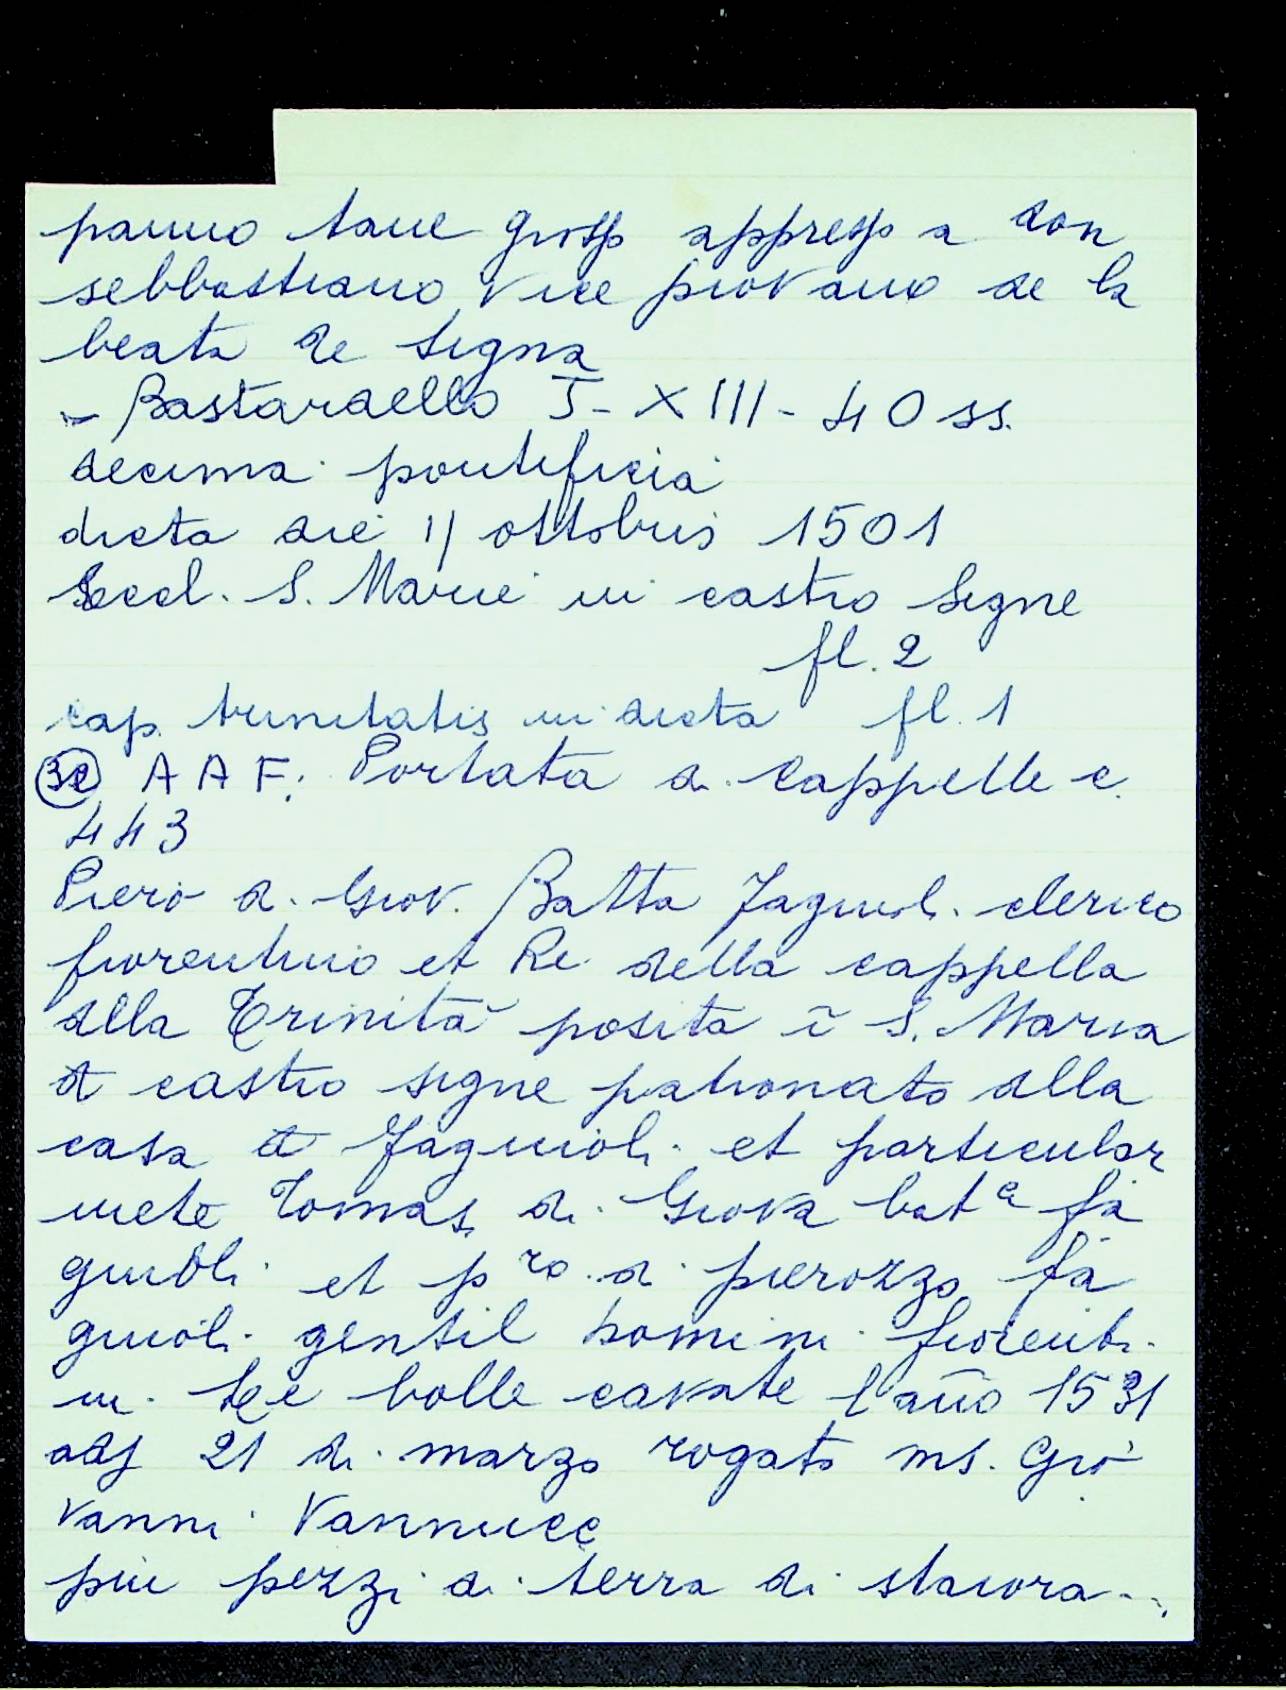 panno tane grosso appresso a don
sebbastiano vice piovano de la
beata de Signa
- Bastardello I - XIII - 40 ss.
decima pontificia
dicta die 11 ottobris 1501
Eccl. S. Marie in castro Signe
fl. 2
cap. trinitatis in dicta fl. 1
32 A A F. Portata di Cappelle c.
443
Piero di Giov. Batta Fagiuoli clerico
fiorentino et Re. della cappella
dlla Trinità posita ĩ S. Maria
casto signe patronato dlla
casa Fagiuoli et particular
mete Tomaso di Giova bat.a fa
giuoli et p.ro di pierozzo fa
giuoli gentil homini fiorenti
ni. Le bolle cavate l'año 1531
adj 21 di marzo rogato ms. Gio
vanni Vannucc
più pezzi di terra di staiora...